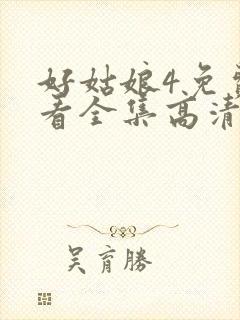 好姑娘4免费
看全集高清
吴育勝